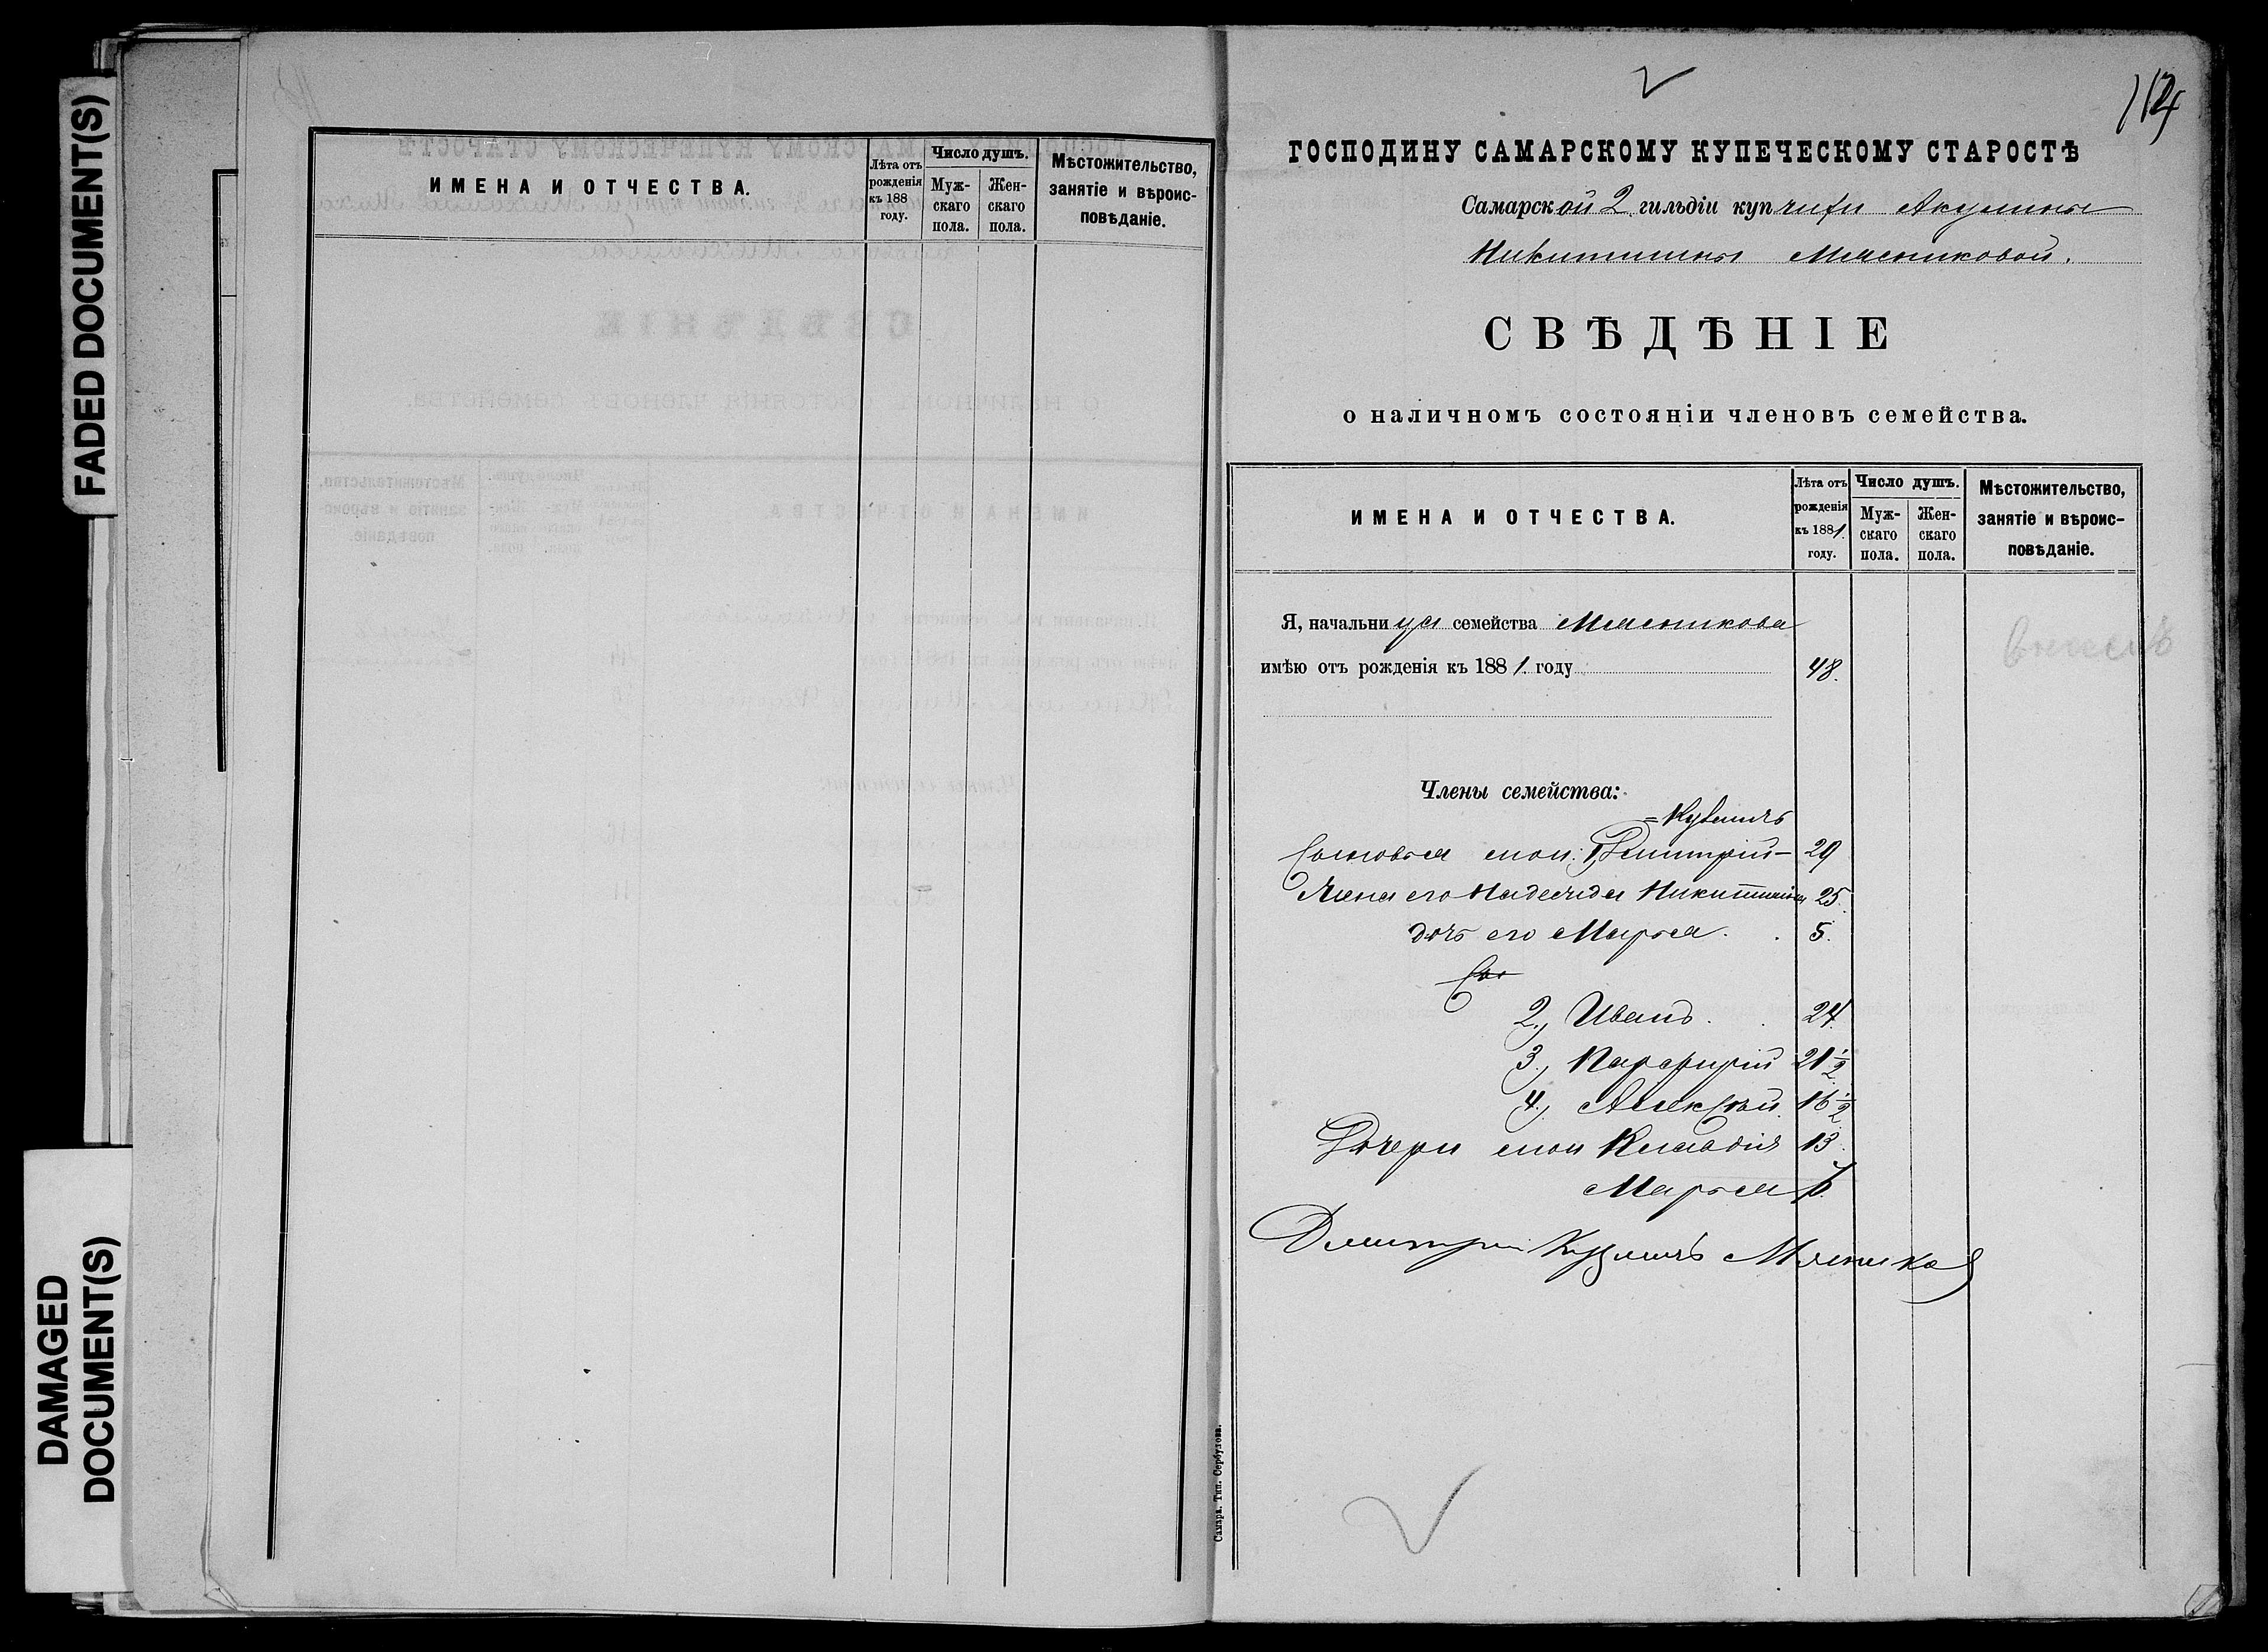 FADED DOCUMENT(S)
DAMAGED
DOCUMENT(S)
ИМЕНА И ОТЧЕСТВА.
Лѣта отъ
рожденія
къ 188
году.
Число душъ.
Муж-
скаго
пола.
Жен-
скаго
пола.
Мѣстожительство,
занятіе и вѣроис-
повѣданіе.
ГОСПОДИНУ САМАРСКОМУ КУПЕЧЕСКОМУ СТАРОСТѢ
Самарской 2 гильдіи купчихи Акулины
Никитишны Мясниковой.
СВѢДѢНІЕ
о наличномъ состояніи членовъ семейства.
ИМЕНА И ОТЧЕСТВА.
Лѣта отъ
рожденія
къ 1881.
году.
Число душъ.
Муж-
скаго
пола.
Жен-
скаго
пола.
Мѣстожительство,
занятіе и вѣроис-
повѣданіе.
Я, начальница семейства Мясникова
имѣю отъ рожденія къ 1881. году 48.
Члены семейства:
= Кузмичъ
Сыновья мои: 1, Дмитрій — 29
Жена его Надежда Никитишна 25.
дочь его Марья . . 5.
2., Иванъ . . 24.
3., Парфирій 21 1/2
4., Алексѣй. 16 1/2
Дочери мои Клавдія 13.
Марья
Дмитрій Кузмичъ Мясников
Самара. Тип. Сербулова.